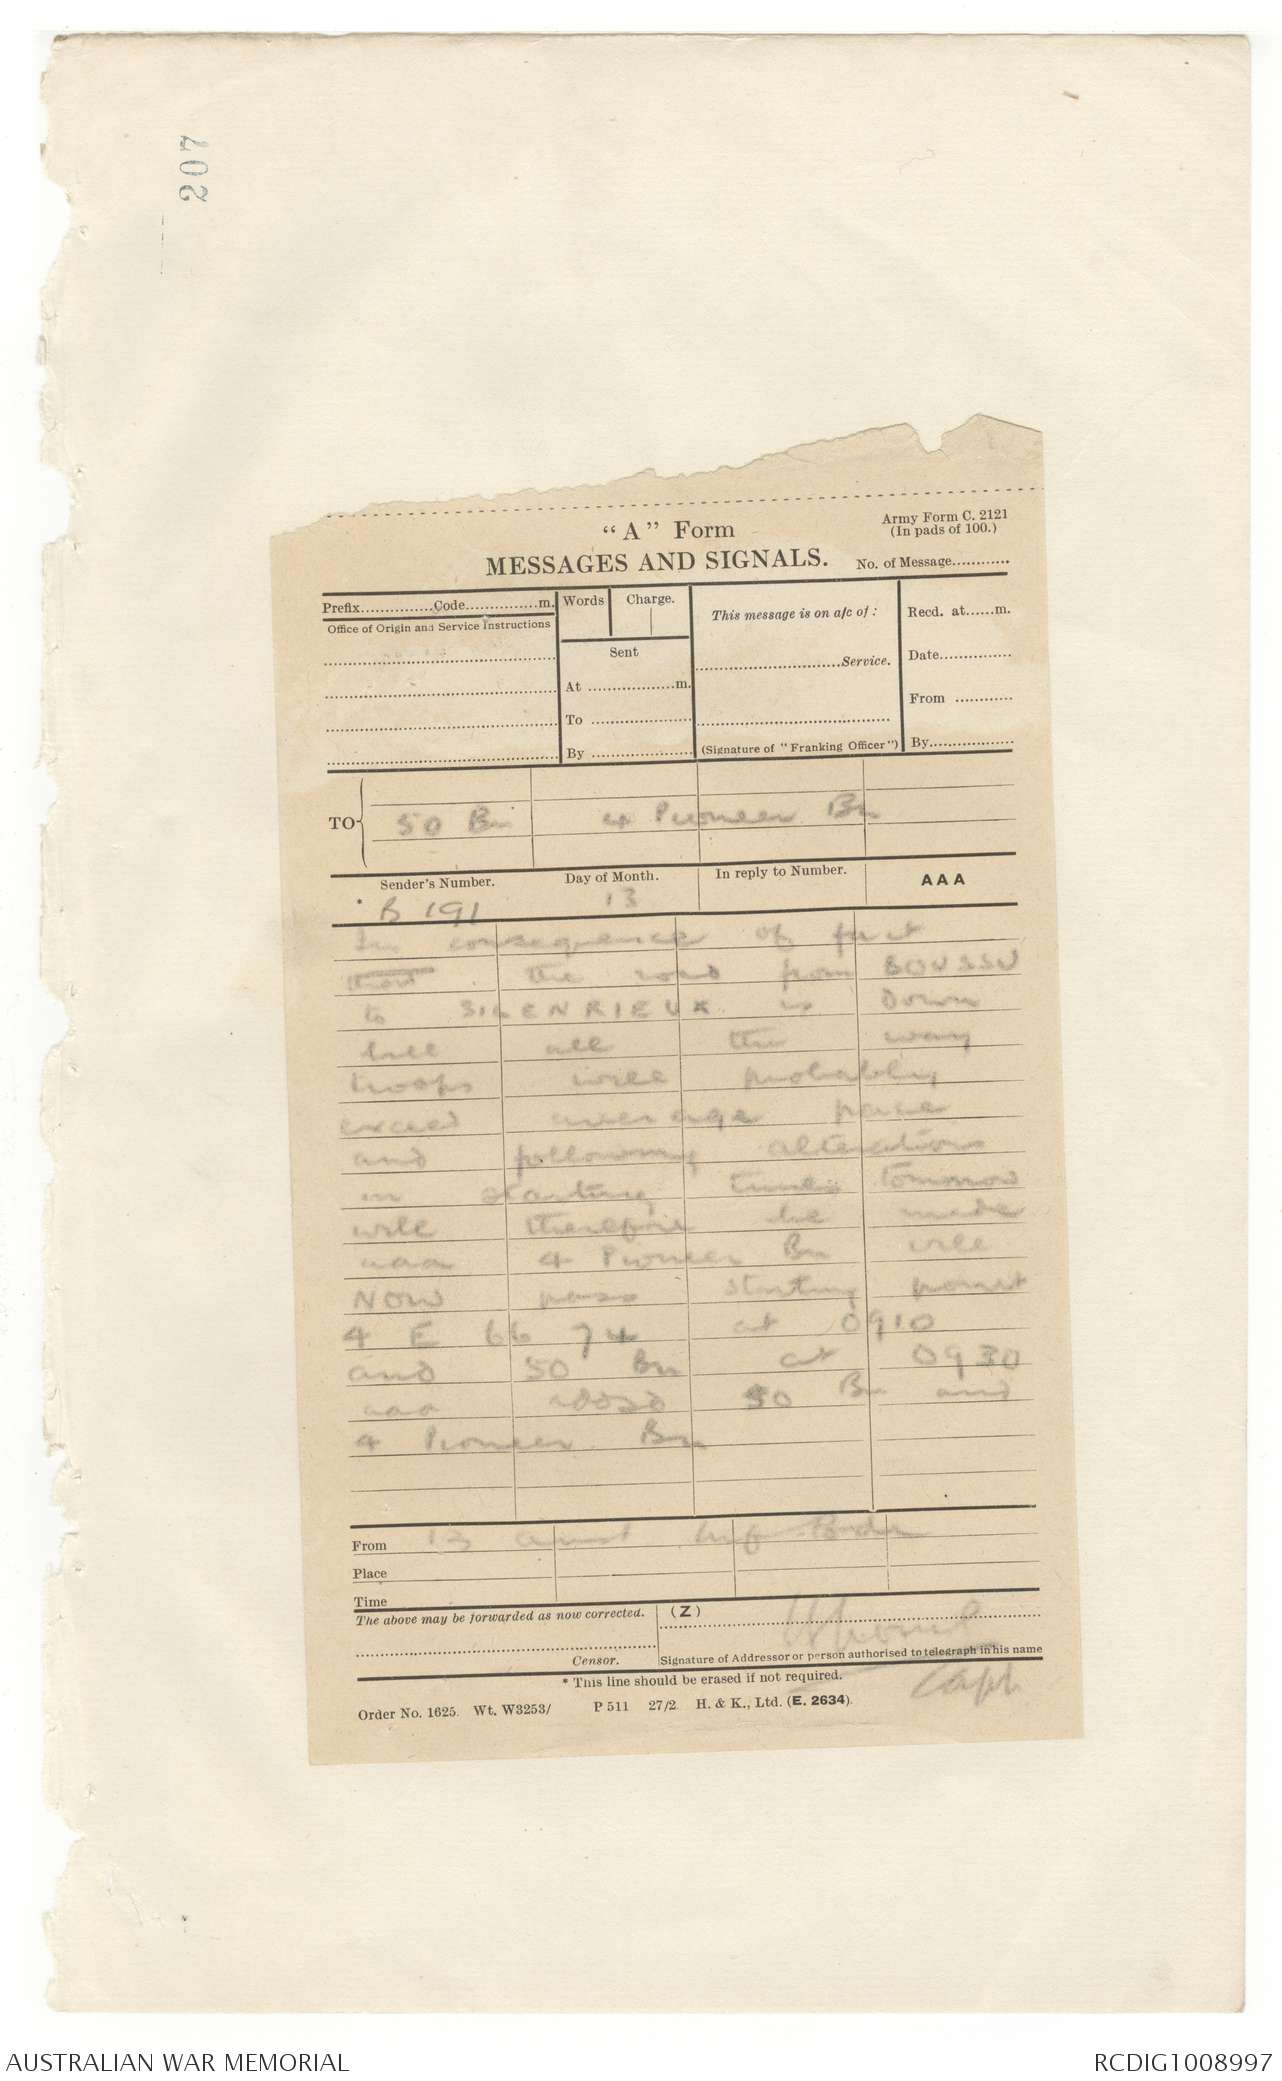 207
"A" Form
Army Form C. 2121
(In pads of 100.)
MESSAGES AND SIGNALS.
No. of Message............
Prefix...............Code...............m.
Words
Charge.
This message is on a/c of :
Recd. at......m.
Office of Origin and Service Instructions
Sent
.............................Service.
Date...............
At ..................m.
From ............
To .....................
By .....................
(Signature of "Franking Officer")
By..................
TO
50 Bn
4 Pioneer Bn
Sender's Number.
Day of Month.
In reply to Number.
AAA
B 191
13
In consequence of fact
that the road from BOUSSU
to SILENRIEUX is Down
hill all the way
troops will probably
exceed average pace
and following alterations
in starting times tomorrow
will therefore be made
aaa 4 Pioneer Bn will
NOW pass starting point
4 E 66 74 at 0910
and 50 Bn at 0930
aaa addsd 50 Bn and
4 Pioneer Bn
From 13 Aust Inf
Place
Time
The above may be forwarded as now corrected.
(Z)
Censor.
Signature of Addressor or person authorised to telegraph in his name
Capt
* This line should be erased if not required.
Order No. 1625. Wt. W3253/ P 511 27/2. H. & K., Ltd. (E. 2634).
AUSTRALIAN WAR MEMORIAL
RCDIG1008997